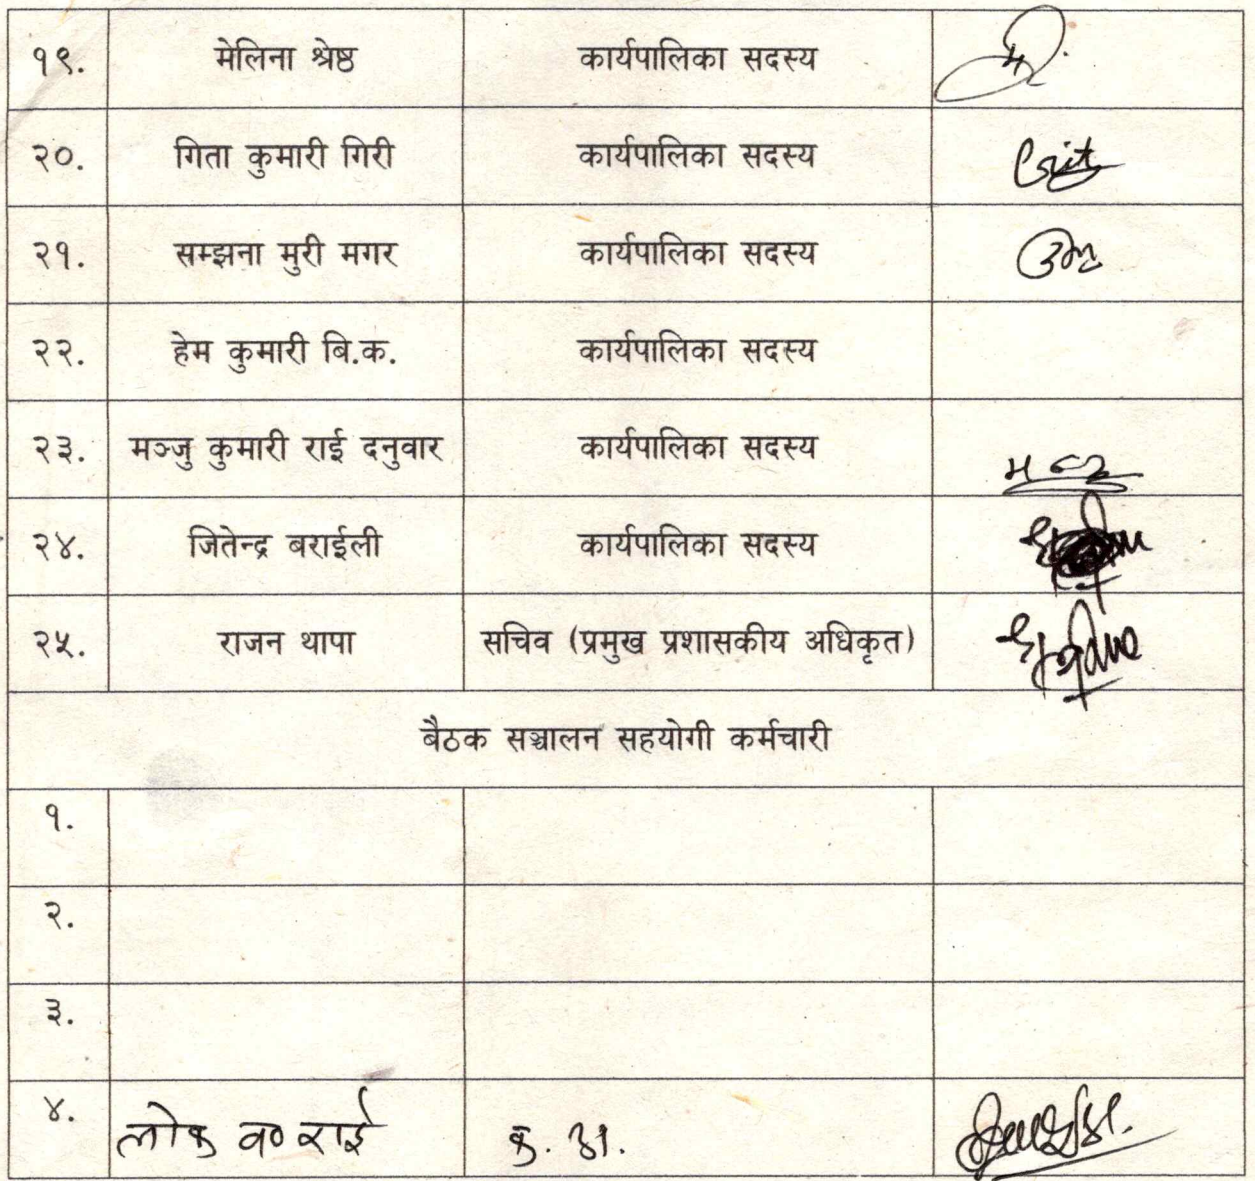 १९. मेलिना श्रेष्ठ कार्यपालिका सदस्य
२०. गिता कुमारी गिरी कार्यपालिका सदस्य
२१. सम्झना मुरी मगर कार्यपालिका सदस्य
२२. हेम कुमारी बि.क. कार्यपालिका सदस्य
२३. मञ्जु कुमारी राई दनुवार कार्यपालिका सदस्य
२४. जितेन्द्र बराईली कार्यपालिका सदस्य
२५. राजन थापा सचिव (प्रमुख प्रशासकीय अधिकृत)
बैठक सञ्चालन सहयोगी कर्मचारी
१.
२.
३.
४. लोक ब० राई क. अ.